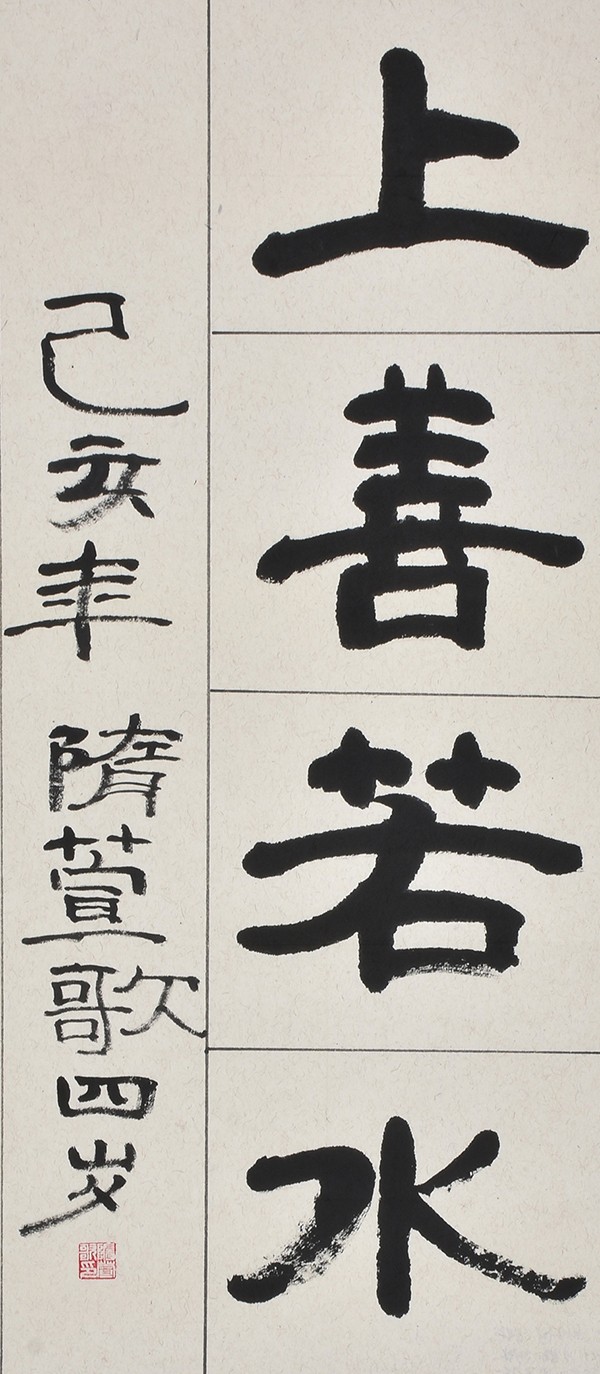 上善若水
己亥年 隋萱歌四岁